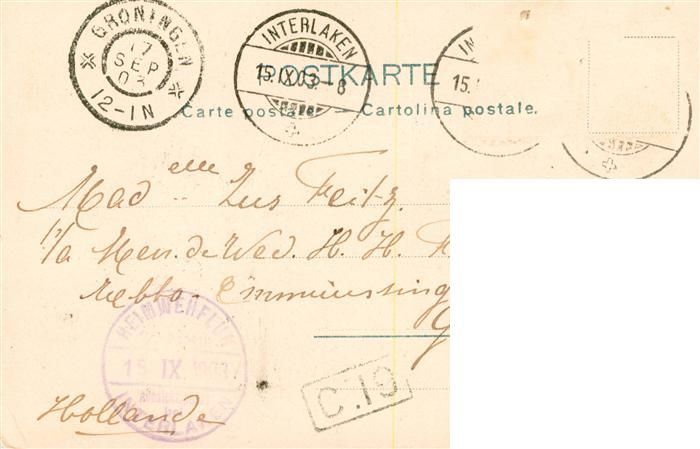 GRONINGEN
17
SEP
03
12-1N
INTERLAKEN
15.IX.03.-8
IN
15.
POSTKARTE
Carte postale. — Cartolina postale.
Mad elle Zus Feitz.
p/a Men. de Wed. H. H. F
HEIMWEHFLUH
15 IX 1903
INTERLAKEN
C.19
Hollande